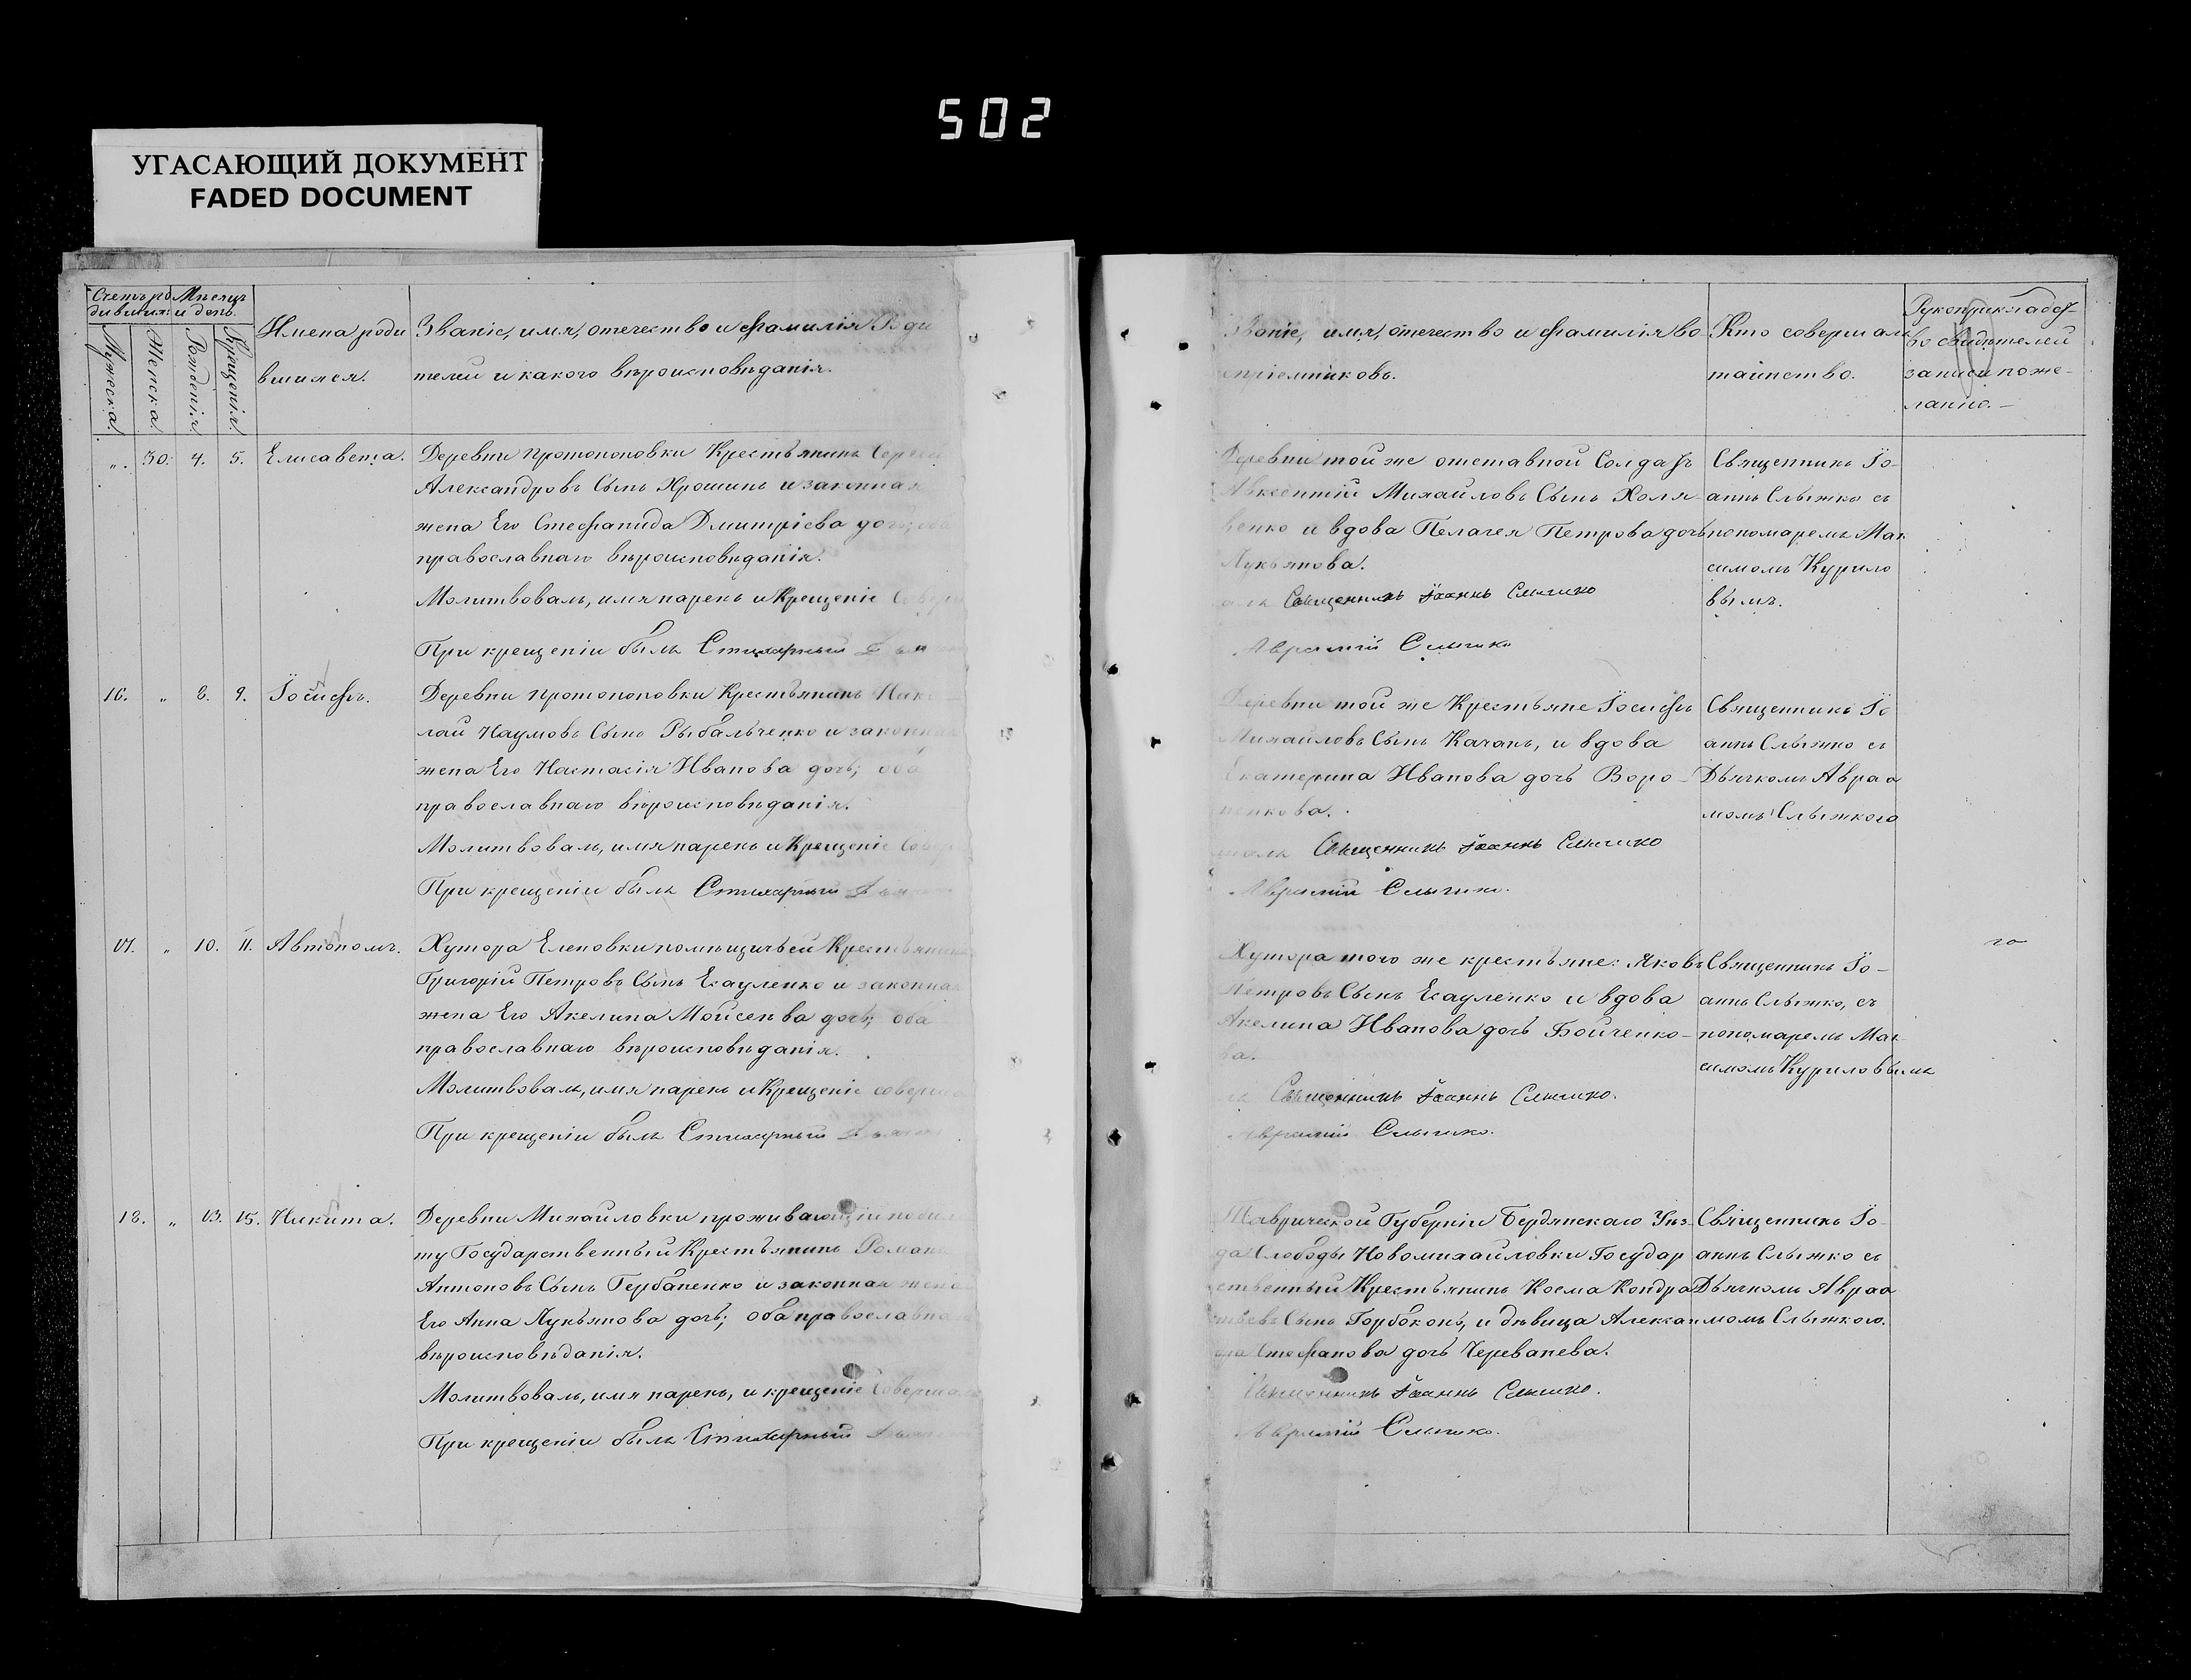 502
УГАСАЮЩИЙ ДОКУМЕНТ
FADED DOCUMENT
Счетъ ро
дившихъ
Мѣсяцъ
и день.
Мужеска.
Женска.
Рожденія.
Крещенія.
Имена роди
вшихся.
Званіе, имя, отечество и фамилія Роди
телей и какого вѣроисповѣданія.
". 30. 4. 5. Елисавета.
Деревни Протопоповки Крестьянинъ Сергѣй
Александровъ Сынъ Хрошинъ и законная
жена Его Стефанида Дмитріева дочь; оба
православнаго вѣроисповѣданія.
Молитвовалъ, имя нарекъ и Крещеніе Соверш
При крещеніи былъ Стихарный Дья
16. " 8. 9. Іосифъ.
Деревни Протопоповки Крестьянинъ Нико
лай Наумовъ Сынъ Рыбальченко и законная
жена Его Настасія Иванова дочь; оба
православнаго вѣроисповѣданія.
Молитвовалъ, имя нарекъ и Крещеніе Совер
При крещеніи былъ Стихарный Дья
17. " 10. 11. Автономъ.
Хутора Еленовки помѣщичьей Крестьянинъ
Григорій Петровъ Сынъ Есауленко и законная
жена Его Акелина Мойсеева дочь; оба
православнаго вѣроисповѣданія.
Молитвовалъ, имя нарекъ и Крещеніе соверша
При крещеніи былъ Стихарный Дьячекъ
18. " 13. 15. Никита.
Деревни Михайловки проживающій по биле
ту Государственный Крестьянинъ Романъ
Антоновъ Сынъ Гербаненко и законная жена
Его Анна Лукьянова дочь; оба православна
вѣроисповѣданія.
Молитвовалъ, имя нарекъ, и крещеніе Совершалъ
При крещеніи былъ Стихарный Дья
Званіе, имя, отечество и фамилія во
спріемниковъ.
Кто совершалъ
таинство.
Рукоприкладс
во свидѣтелей
записи по же-
ланію.
Деревни той же отставной Солдатъ
Авксентій Михайловъ Сынъ Холя-
венко и вдова Пелагея Петрова дочь
Лукьянова.
алъ Священникъ Іоаннъ Слыжко
Аврамій Слыжко
Священникъ Іо-
аннъ Слыжко съ
пономаремъ Мак
симомъ Курило
вымъ.
Деревни той же Крестьяне Іосифъ
Михайловъ Сынъ Качанъ, и вдова
Екатерина Иванова дочь Воро-
ненкова.
шалъ Священникъ Іоаннъ Слыжко
Аврамій Слыжко.
Священникъ Іо
аннъ Слыжко съ
Дьячкомъ Авраа
момъ Слыжкого
Хутора того же крестьяне: Яковъ
Петровъ Сынъ Есауленко и вдова
Акелина Иванова дочь Бойченко-
ва.
лъ Священникъ Іоаннъ Слыжко.
Аврамій Слыжко.
Священникъ Іо-
аннъ Слыжко, съ
пономаремъ Мак
симомъ Куриловымъ
го
Таврической Губерніи Бердянскаго Уѣз-
да Слободы Новомихайловки Государ
ственный Крестьянинъ Косма Кондра
тьевъ Сынъ Горбоконь, и дѣвица Алексан
дра Стефанова дочь Череванева.
Священникъ Іоаннъ Слыжко.
Аврамій Слыжко.
Священникъ Іо-
аннъ Слыжко съ
Дьячкомъ Авраа
момъ Слыжкого.